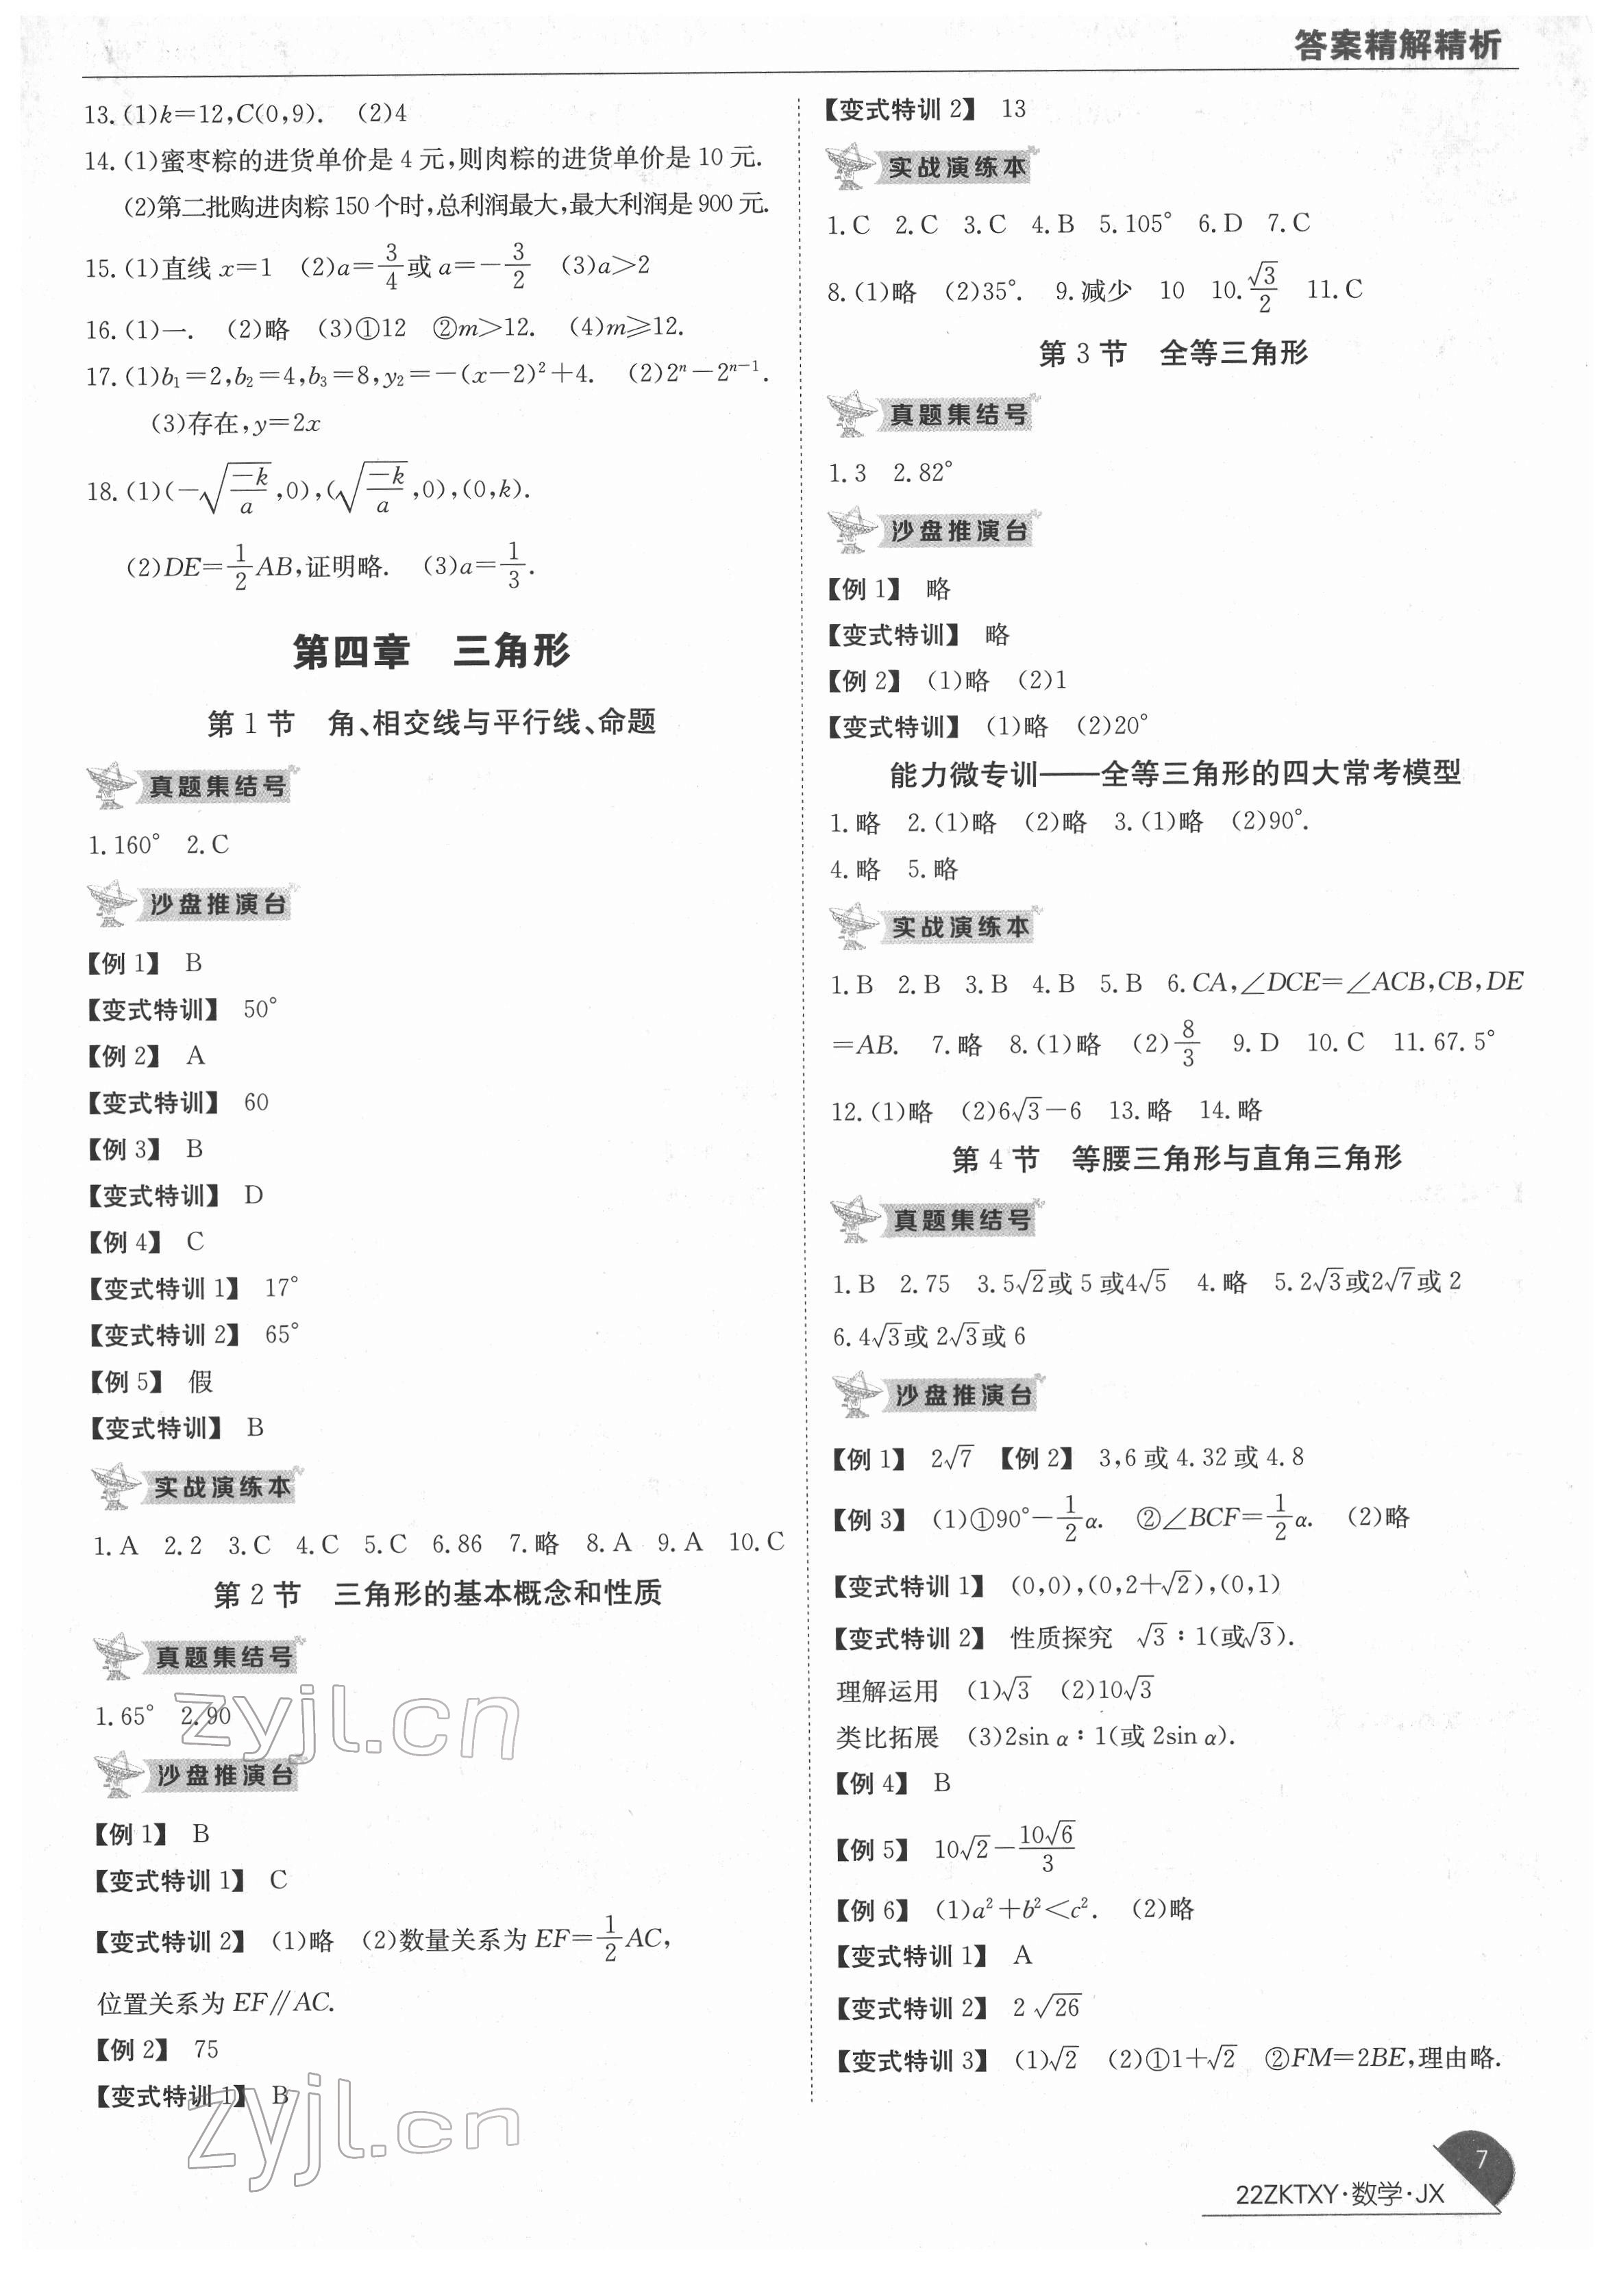 答案精解精析
13.(1)k=12,C(0,9). (2)4
14.(1)蜜枣粽的进货单价是 4 元,则肉粽的进货单价是 10 元.
(2)第二批购进肉粽 150 个时,总利润最大,最大利润是 900 元.
15.(1)直线 x=1 (2)a=3/4或 a=-3/2 (3)a>2
16.(1)一. (2)略 (3)①12 ②m>12. (4)m≥12.
17.(1)b₁=2,b₂=4,b₃=8,y₂=-(x-2)²+4. (2)2ⁿ-2ⁿ⁻¹.
(3)存在,y=2x
18.(1)(-√(-k/a),0),(√(-k/a),0),(0,k).
(2)DE=1/2AB,证明略. (3)a=1/3.
第四章 三角形
第 1 节 角、相交线与平行线、命题
真题集结号
1.160° 2.C
沙盘推演台
【例 1】 B
【变式特训】 50°
【例 2】 A
【变式特训】 60
【例 3】 B
【变式特训】 D
【例 4】 C
【变式特训 1】 17°
【变式特训 2】 65°
【例 5】 假
【变式特训】 B
实战演练本
1.A 2.2 3.C 4.C 5.C 6.86 7.略 8.A 9.A 10.C
第 2 节 三角形的基本概念和性质
真题集结号
1.65° 2.90
zyjl.cn
沙盘推演台
【例 1】 B
【变式特训 1】 C
【变式特训 2】 (1)略 (2)数量关系为 EF=1/2AC,
位置关系为 EF∥AC.
【例 2】 75
【变式特训 1】 B
zyjl.cn
【变式特训 2】 13
实战演练本
1.C 2.C 3.C 4.B 5.105° 6.D 7.C
8.(1)略 (2)35°. 9.减少 10 10.√3/2 11.C
第 3 节 全等三角形
真题集结号
1.3 2.82°
沙盘推演台
【例 1】 略
【变式特训】 略
【例 2】 (1)略 (2)1
【变式特训】 (1)略 (2)20°
能力微专训——全等三角形的四大常考模型
1.略 2.(1)略 (2)略 3.(1)略 (2)90°.
4.略 5.略
实战演练本
1.B 2.B 3.B 4.B 5.B 6.CA,∠DCE=∠ACB,CB,DE
=AB. 7.略 8.(1)略 (2)8/3 9.D 10.C 11.67.5°
12.(1)略 (2)6√3-6 13.略 14.略
第 4 节 等腰三角形与直角三角形
真题集结号
1.B 2.75 3.5√2或 5 或4√5 4.略 5.2√3或2√7或 2
6.4√3或 2√3或 6
沙盘推演台
【例 1】 2√7 【例 2】 3,6 或 4.32 或 4.8
【例 3】 (1)①90°-1/2α. ②∠BCF=1/2α. (2)略
【变式特训 1】 (0,0),(0,2+√2),(0,1)
【变式特训 2】 性质探究 √3∶1(或√3).
理解运用 (1)√3 (2)10√3
类比拓展 (3)2sin α∶1(或 2sin α).
【例 4】 B
【例 5】 10√2-10√6/3
【例 6】 (1)a²+b²<c². (2)略
【变式特训 1】 A
【变式特训 2】 2√26
【变式特训 3】 (1)√2 (2)①1+√2 ②FM=2BE,理由略.
7
22ZKTXY·数学·JX